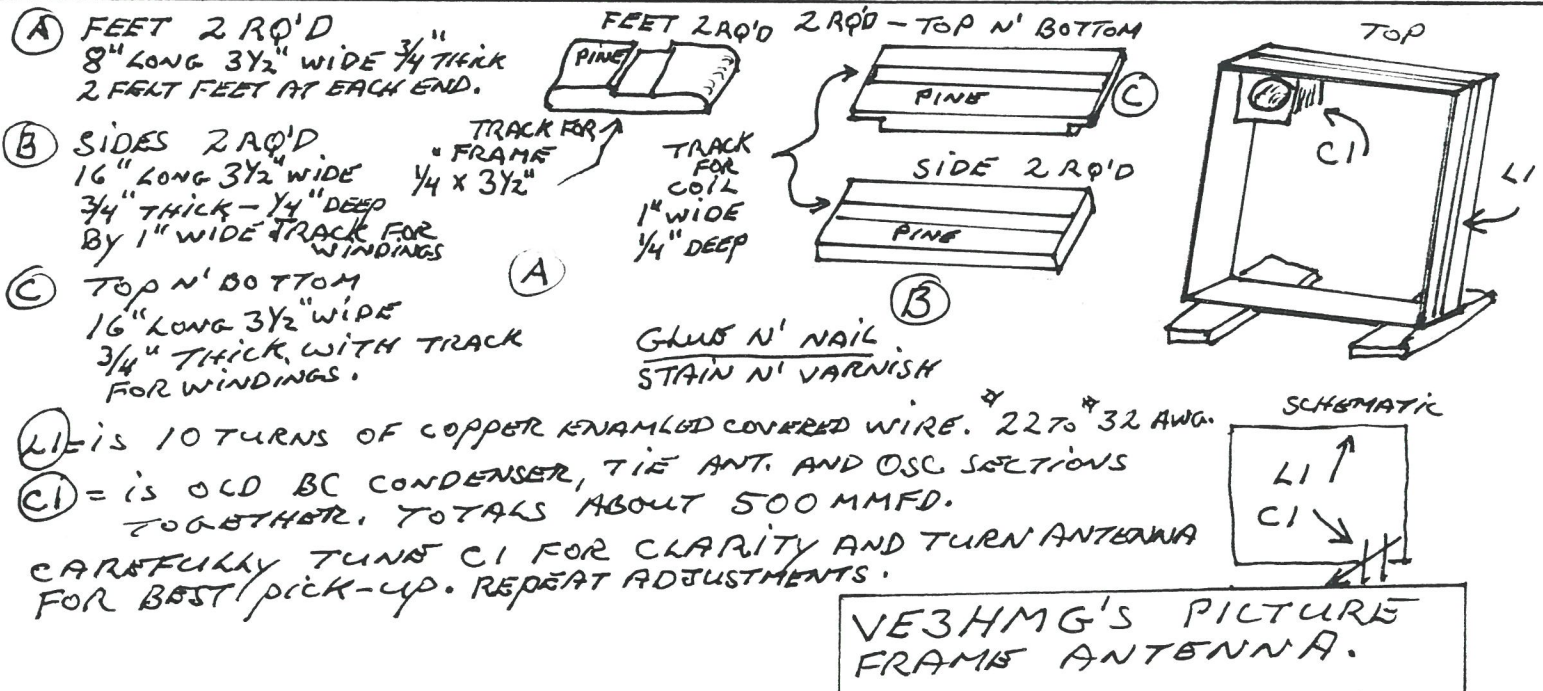 (A) FEET 2 RQ'D
8" LONG 3 1/2" WIDE 3/4" THICK
2 FELT FEET AT EACH END.
(B) SIDES 2 RQ'D
16" LONG 3 1/2" WIDE
3/4" THICK - 1/4" DEEP
BY 1" WIDE TRACK FOR
WINDINGS
(C) TOP N' BOTTOM
16" LONG 3 1/2" WIDE
3/4" THICK, WITH TRACK
FOR WINDINGS.
FEET 2 RQ'D
PINE
TRACK FOR
"FRAME
1/4 X 3 1/2"
(A)
2 RQ'D - TOP N' BOTTOM
PINE
(C)
TRACK
FOR
COIL
1" WIDE
1/4" DEEP
SIDE 2 RQ'D
PINE
(B)
GLUE N' NAIL
STAIN N' VARNISH
TOP
C1
L1
(L1) = IS 10 TURNS OF COPPER ENAMLED COVERED WIRE. #22 TO #32 AWG.
(C1) = IS OLD BC CONDENSER, TIE ANT. AND OSC SECTIONS
TOGETHER. TOTALS ABOUT 500 MMFD.
CAREFULLY TUNE C1 FOR CLARITY AND TURN ANTENNA
FOR BEST PICK-UP. REPEAT ADJUSTMENTS.
SCHEMATIC
L1
C1
VE3HMG'S PICTURE
FRAME ANTENNA.